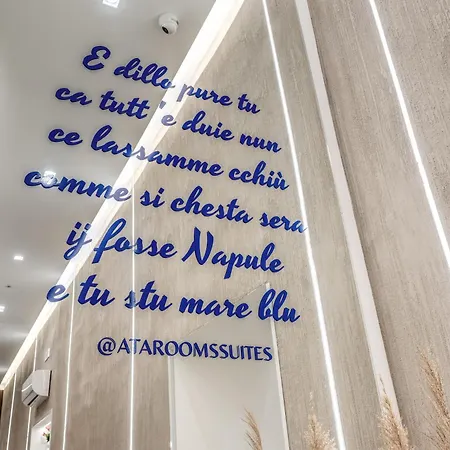 E dillo pure tu
ca tutt 'e duie nun
ce lassamme cchiù
comme si chesta sera
ij fosse Napule
e tu stu mare blu
@ATAROOMSSUITES